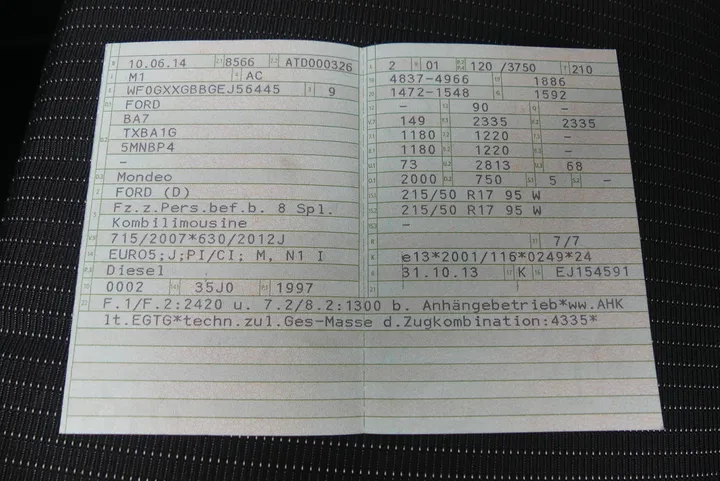 10.06.14 8566 ATD000326
M1 AC
WF0GXXGBBGEJ56445 9
FORD
BA7
TXBA1G
5MNBP4
-
Mondeo
FORD (D)
Fz.z.Pers.bef.b. 8 Spl.
Kombilimousine
715/2007*630/2012J
EURO5;J;PI/CI; M, N1 I
Diesel
0002 35J0 1997
2 01 120 /3750 210
4837-4966 1886
1472-1548 1592
- 90 -
149 2335 2335
1180 1220 -
1180 1220 -
73 2813 68
2000 750 5 -
215/50 R17 95 W
215/50 R17 95 W
-
7/7
e13*2001/116*0249*24
31.10.13 K EJ154591
F.1/F.2:2420 u. 7.2/8.2:1300 b. Anhängebetrieb*ww.AHK
lt.EGTG*techn.zul.Ges-Masse d.Zugkombination:4335*